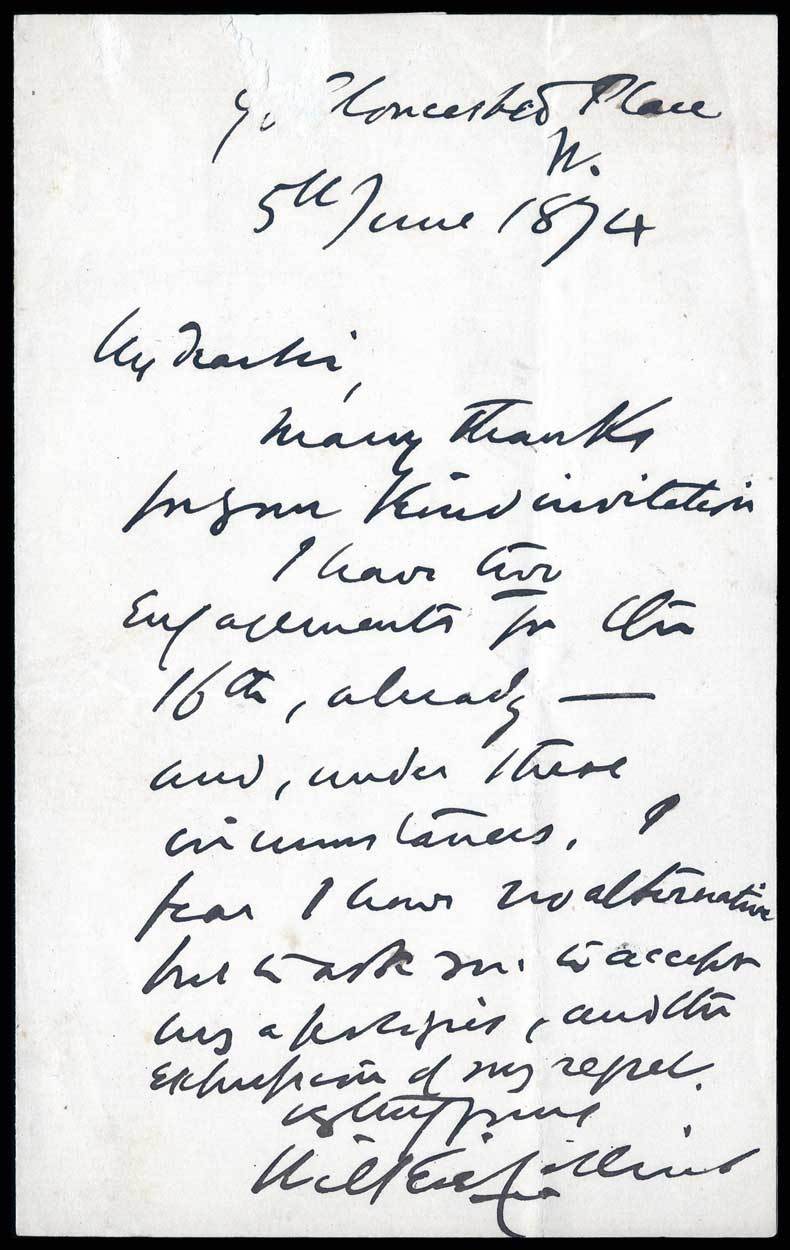 90 Gloucester Place
W.
5th June 1874
My dear Sir,
Many thanks
for your kind invitation
I have two
Engagements for the
16th, already —
and, under these
circumstances, I
fear I have no alternative
but to ask you to accept
my apologies, and the
Expression of my regret.
truly yours
Wilkie Collins